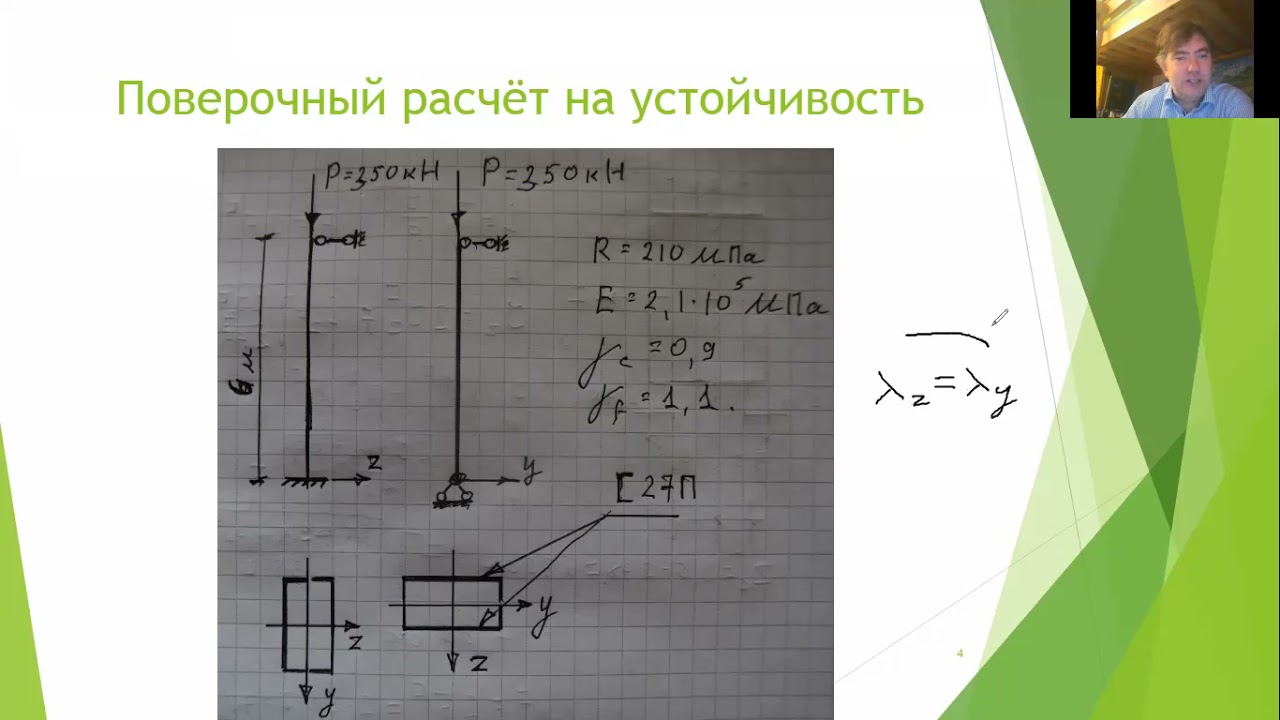 Поверочный расчёт на устойчивость
P=350кН P=350кН
R=210 мПа
E=2,1·10⁵ МПа
γc=0,9
γf=1,1.
6 м
z
y
[27П
z
y
y
z
λz=λy
4